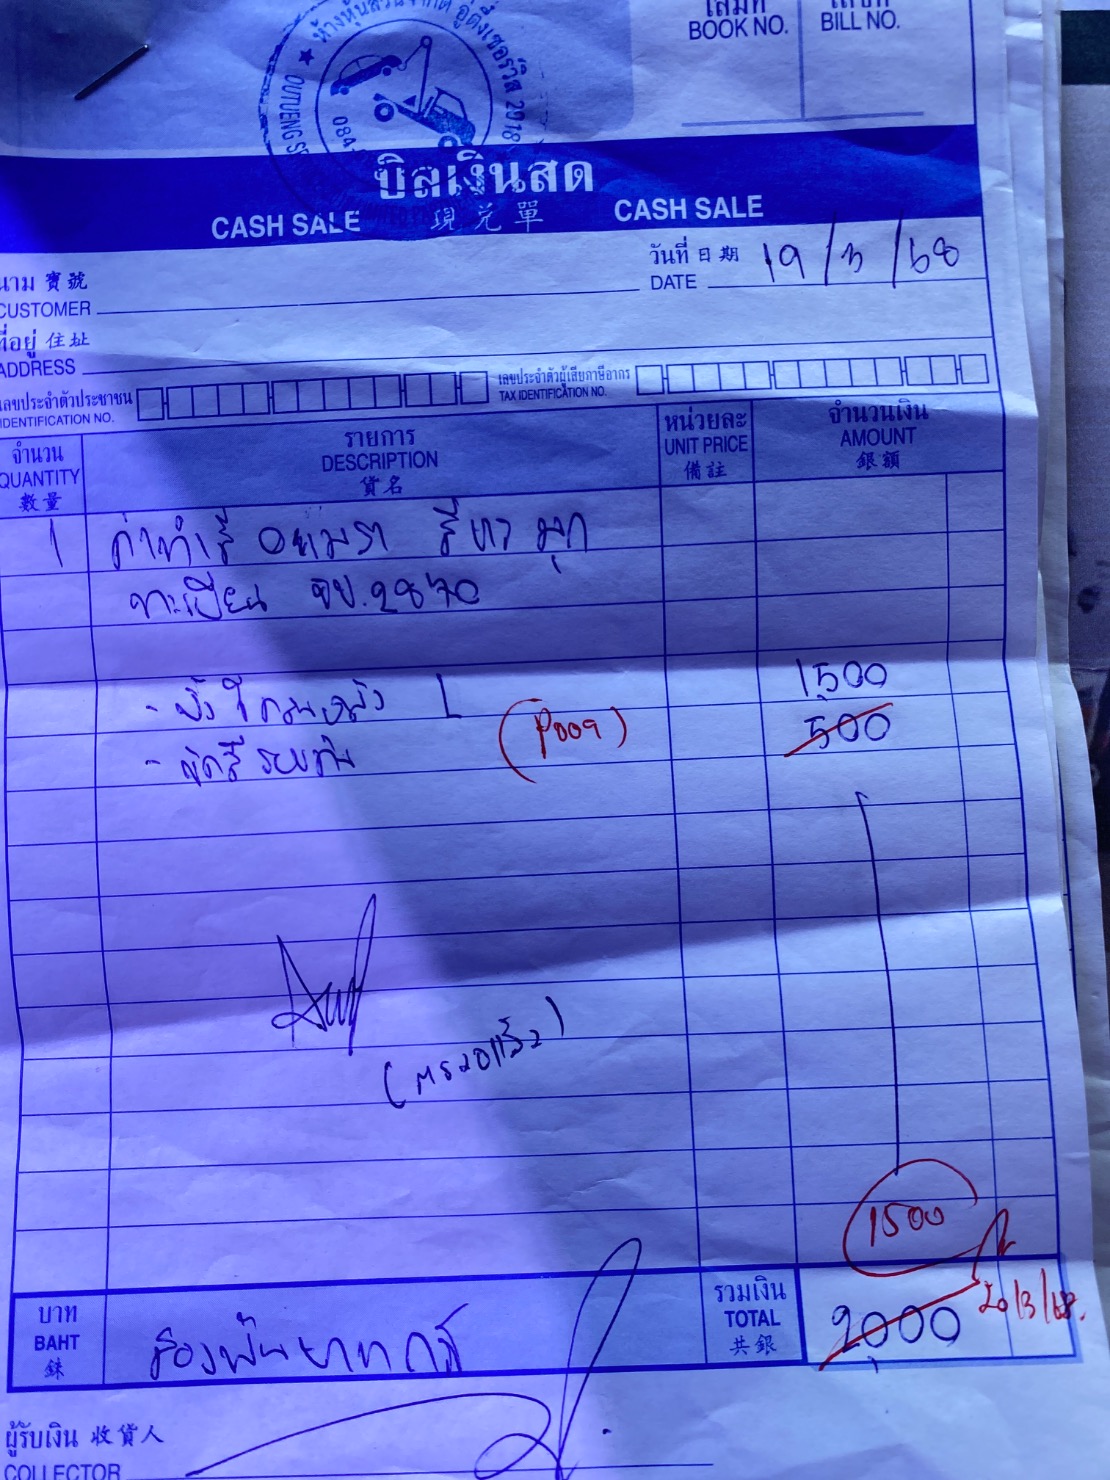 ห้างหุ้นส่วนจำกัด อู่ตึ๋งเซอร์วิส 2018
OUTUENG
084
เล่มที่ เลขที่
BOOK NO. BILL NO.
บิลเงินสด
CASH SALE 現兌單 CASH SALE
วันที่ 日期 19/3/68
DATE
นาม 寶號
CUSTOMER
ที่อยู่ 住址
ADDRESS
เลขประจำตัวประชาชน เลขประจำตัวผู้เสียภาษีอากร
IDENTIFICATION NO. TAX IDENTIFICATION NO.
จำนวน รายการ หน่วยละ จำนวนเงิน
QUANTITY DESCRIPTION UNIT PRICE AMOUNT
數量 貨名 備註 銀額
1 ค่าทำสี สีขาวมุก
ทะเบียน 2870
- L 1500
- 500
(ตรวจแล้ว)
1500
บาท รวมเงิน
BAHT TOTAL
銖 共銀
สองพันบาท 2000 20/3/68.
ผู้รับเงิน 收貨人
COLLECTOR